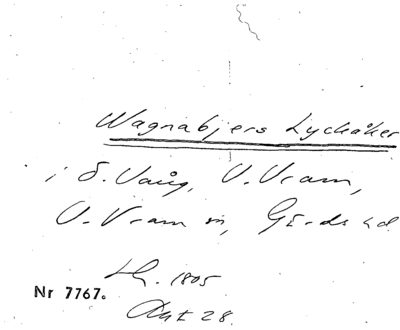 Wagnabjers Lyckåker
i S. Vång, V. Vram,
V. Vram sn, Gärds hd
LH. 1805
Akt 28.
Nr 7767.